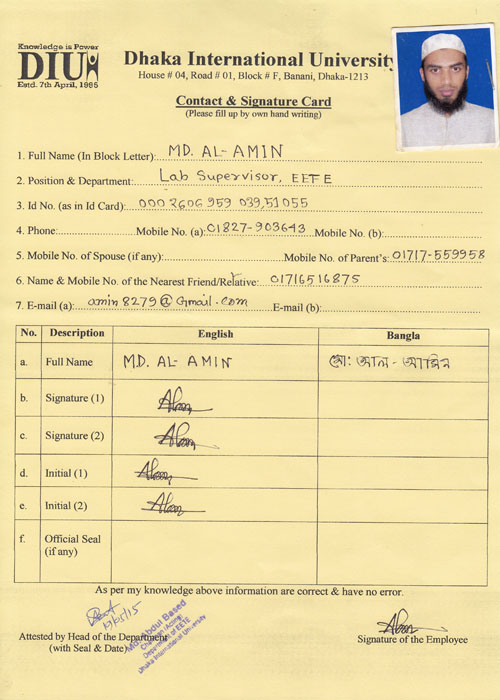 Knowledge is Power
DIU
Estd. 7th April, 1995
Dhaka International University
House # 04, Road # 01, Block # F, Banani, Dhaka-1213
Contact & Signature Card
(Please fill up by own hand writing)
1. Full Name (In Block Letter): MD. AL-AMIN
2. Position & Department: Lab Supervisor, EETE
3. Id No. (as in Id Card): 000 2606 959 039,51 055
4. Phone: Mobile No. (a): 01827-903643 Mobile No. (b):
5. Mobile No. of Spouse (if any): Mobile No. of Parent's: 01717-559958
6. Name & Mobile No. of the Nearest Friend/Relative: 01716516875
7. E-mail (a): amin8279@Gmail.com E-mail (b):
No. Description English Bangla
a. Full Name MD. AL-AMIN মো: আল-আমিন
b. Signature (1)
c. Signature (2)
d. Initial (1)
e. Initial (2)
f. Official Seal
(if any)
As per my knowledge above information are correct & have no error.
Md. Abdul Based
Chairman (Acting)
Department of EETE
Dhaka International University
Attested by Head of the Department
(with Seal & Date)
Signature of the Employee